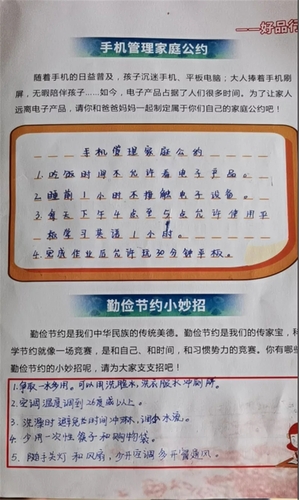 ——好品行
手机管理家庭公约
随着手机的日益普及，孩子沉迷手机、平板电脑；大人捧着手机刷
屏，无暇陪伴孩子……如今，电子产品占据了人们很多时间。为了让家人
远离电子产品，请你和爸爸妈妈一起制定属于你们自己的家庭公约吧！
手机管理家庭公约
1.吃饭时间不允许看电子产品。
2.睡前1小时不接触电子设备。
3.每天下午4点至5点允许使用平
板学习英语1小时。
4.完成作业后允许玩30分钟平板。
勤俭节约小妙招
勤俭节约是我们中华民族的传统美德。勤俭节约是我们的传家宝，科
学节约就像一场竞赛，是和自己、和时间、和习惯势力的竞赛。你有哪些
勤俭节约的小妙招呢，请为大家支支招吧！
1.争取一水多用。可以用洗脸水，洗衣服水冲厕所。
2.空调温度调到26度或以上。
3.洗澡时避免长时间冲淋，调小水流。
4.少用一次性筷子和购物袋。
5.随手关灯和风扇，少开空调多开窗通风。